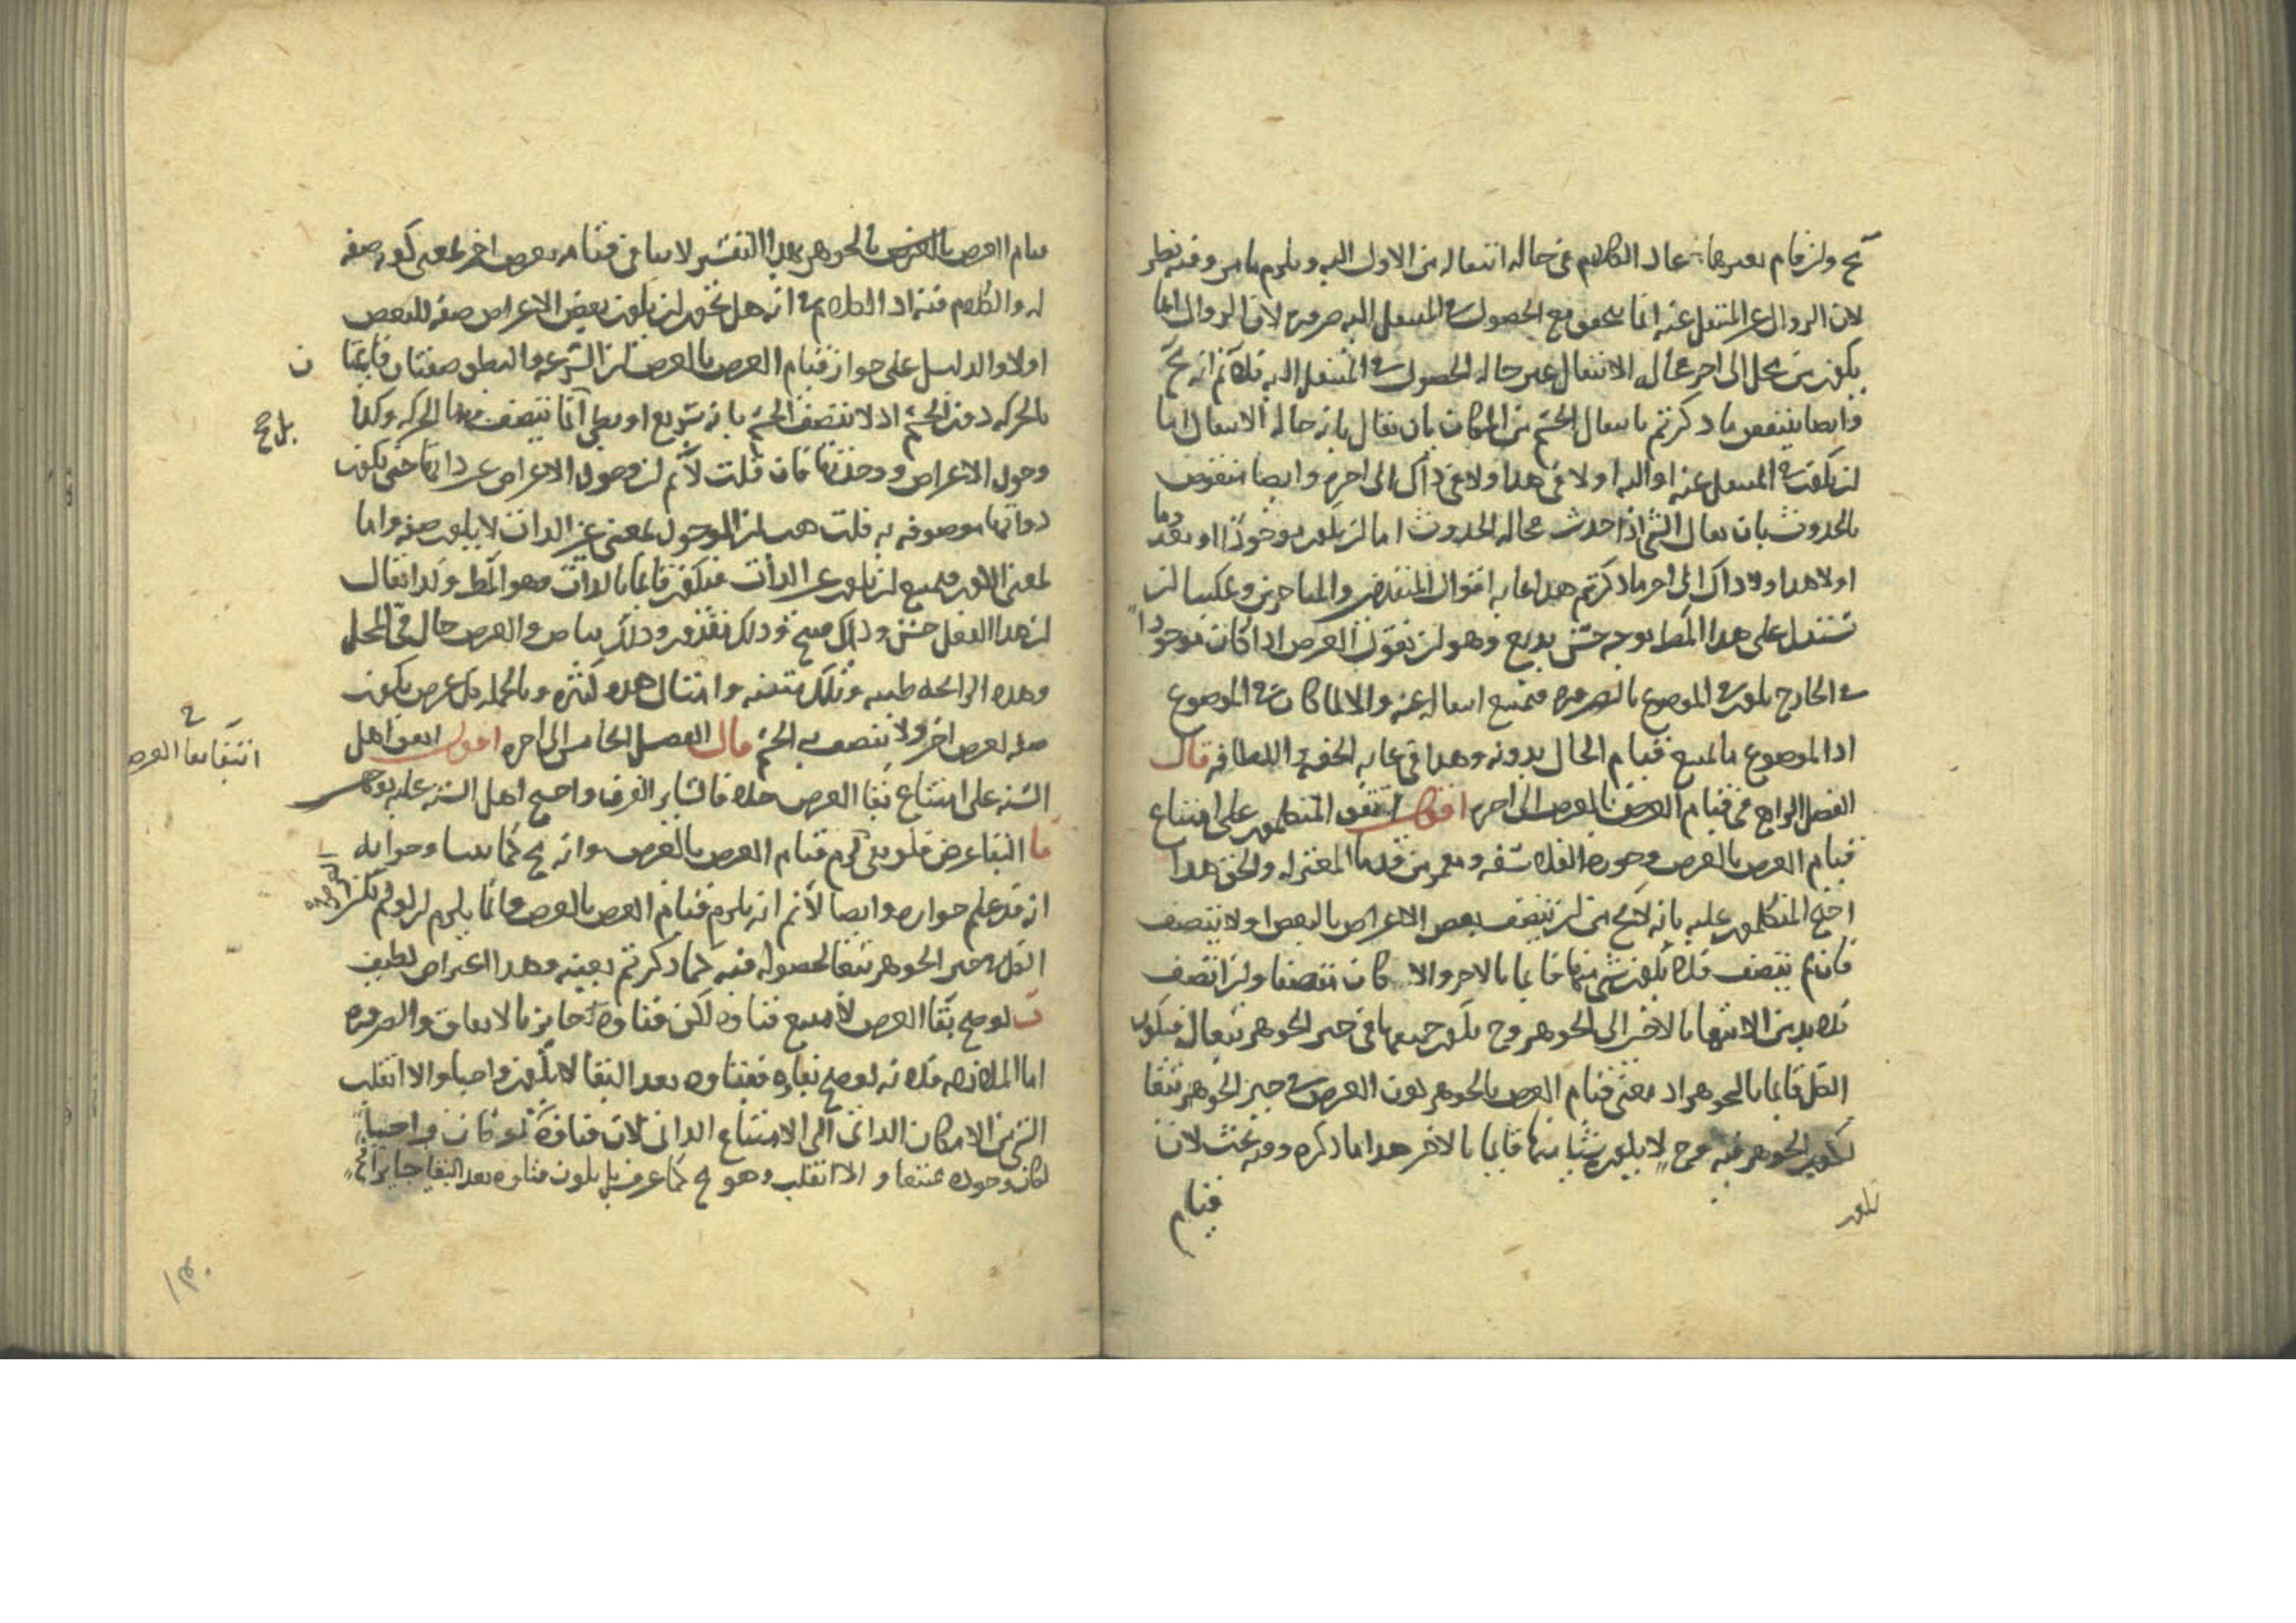 مح وان قام بغيرهما عاد الكلام في حالة انتقاله من الاول اليه ويلزم ما مر وفيه نظر
لان الزوال عن المنتقل عنه انما يتحقق مع الحصول في المنتقل اليه ضرورة لان الزوال انما
يكون من محل الى اخر فحالة الانتقال عين حالة الحصول في المنتقل اليه فلا تم انه مح
وايضا ينتقض ما ذكرتم بانتقال الجسم من المكان بان يقال بانه حالة الانتقال اما
ان يكون في المنتقل عنه او اليه او لا في هذا ولا في ذاك الى اخره وايضا منقوض
بالحدوث بان يقال الشي اذا حدث فحالة الحدوث اما ان يكون موجودا او معدوما
او لا هذا ولا ذاك الى اخر ما ذكرتم هذا غاية اقوال المتقدمين والمتاخرين وعكسنا ان
نستدل على هذا المط بوجه حسن بديع وهو ان نقول العرض اذا كان موجودا
في الخارج يكون في الموضوع بالضرورة فيمتنع انتقاله عنه والا لما كان في الموضوع
اذ الموضوع ما يمتنع قيام الحال بدونه وهذا في غاية الخفة واللطافة قال
الفصل الرابع في قيام العرض بالعرض الى اخره اقول اتفق المتكلمون على امتناع
قيام العرض بالعرض وجوزه الفلاسفة ومعمر من قدما المعتزلة والحق هذا
احتج المتكلمون عليه بانه لا يخ من ان يتصف بعض الاعراض بالبعض او لا يتصف
فان لم يتصف فلا يكون شي منها قايما بالاخر والا كان متصفا وان اتصف
فلا بد من الانتها بالاخر الى الجوهر وح يكون جميعها في حيز الجوهر تبعا له فيكون
الكل قايما بالجوهر اذ معنى قيام العرض بالجوهر كون العرض في حيز الجوهر تبعا
لكون الجوهر فيه وح لا يكون شيا منها قايما بالاخر هذا ما ذكره وفيه بحث لان
قيام
قيام العرض بالجوهر بهذا التفسير لا ينافي قيامه بعرض اخر بمعنى كونه صفة
له والكلام فيه اذ الكلام في انه هل يجوز ان يكون بعض الاعراض صفة للبعض
او لا والدليل على جواز قيام العرض بالعرض ان السرعة والبطو صفتان قايمتا
ن
بالحركة دون الجسم اذ لا يتصف الجسم بانه سريع او بطي انما يتصف بهما الحركة وكذا
وجود الاعراض ووحدتها فان قلت لا تم ان وجود الاعراض غير ذاتها حتى يكون
ذواتها موصوفة به قلت هب ان الوجود بمعنى عين الذات لا يكون صفة واما
بمعنى الكون فيمتنع ان يكون عين الذات فيكون قايما بالذات وهو المط وكذا يقال
ان هذا الفعل حسن وذلك قبيح وذلك تقدير وذلك بياض والعرض حال في المحل
وهذه الرايحة طيبة وتلك منتنة وامثال هذه كثيرة وبالجملة كل عرض يكون
صفة لعرض اخر ولا يتصف به الجسم قال الفصل الخامس الى اخره اقول اتفق اهل
في انتفا بقا العرض
السنة على امتناع بقا العرض خلافا لساير الفرق واحتج اهل السنة عليه بوجهين
ا البقا عرض فلو بقي لزم قيام العرض بالعرض وانه مح كما بينا وجوابه
انه قد علم جوازه وايضا لا تم انه يلزم قيام العرض بالعرض وانما يلزم ان لو لم يكن
الكل في حيز الجوهر تبعا لحصوله فيه كما ذكرتم بعينه وهذا اعتراض لطيف
ب لو صح بقا العرض لامتنع فناوه لكن فناوه جايز بالاتفاق والضرورة
اما الملازمة فلانه لو صح بقاوه ففناوه بعد البقا لا يكون واجبا والا انقلب
الشي من الامكان الذاتي الى الامتناع الذاتي لان فناوه لو كان واجبا
لكان وجوده ممتنعا والا انقلب وهو مح كما عرف بل يكون فناوه بعد البقا جايزا
١٣٠